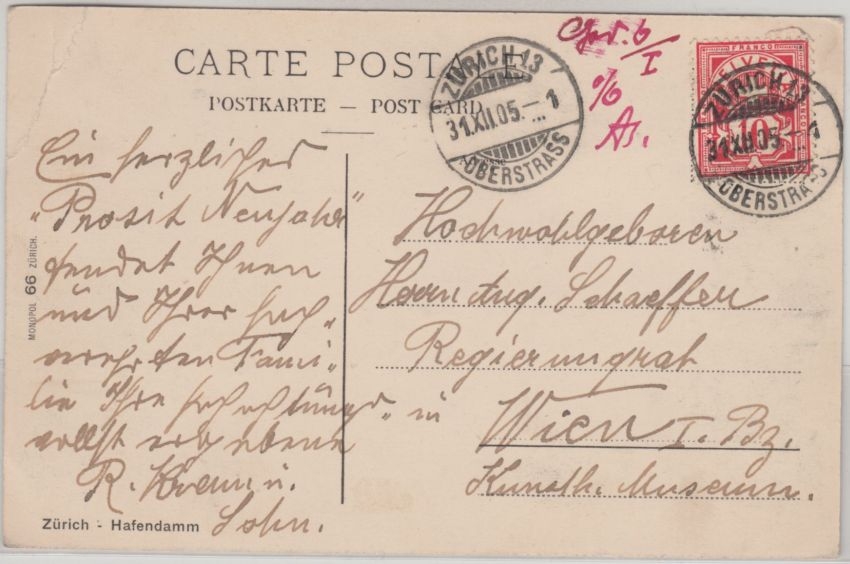 CARTE POSTALE
POSTKARTE — POST CARD
ZÜRICH 13
31.XII.05.—1
OBERSTRASS
FRANCO
HELVETIA
10
ZÜRICH 13
31.XII.05.—1
OBERSTRASS
Ein herzliches
"Prosit Neujahr"
sendet Ihnen
und Ihrer hoch-
verehrten Fami-
lie Ihre hochachtungs-
vollst ergebene
R. u.
Sohn.
Hochwohlgeboren
Herrn Aug. Schaeffer
Regierungrat
in Wien I. Bz.
Kunsth. Museum.
MONOPOL 66 ZÜRICH.
Zürich - Hafendamm